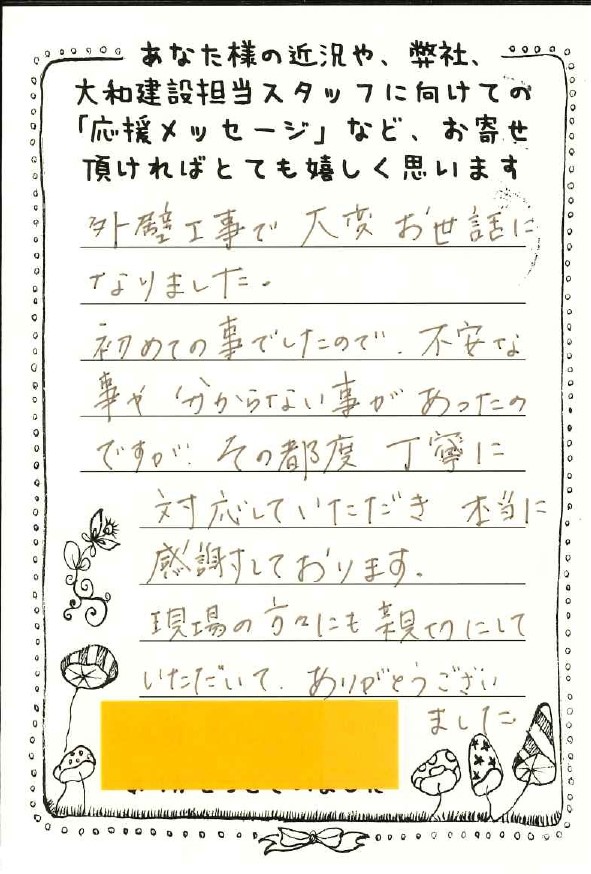 あなた様の近況や、弊社、
大和建設担当スタッフに向けての
「応援メッセージ」など、お寄せ
頂ければとても嬉しく思います
外壁工事で 大変 お世話に
なりました。
初めての事でしたので、不安な
事や 分からない事が あったの
ですが、その都度 丁寧に
対応していただき 本当に
感謝しております。
現場の方々にも親切にして
いただいて、ありがとうござい
ました